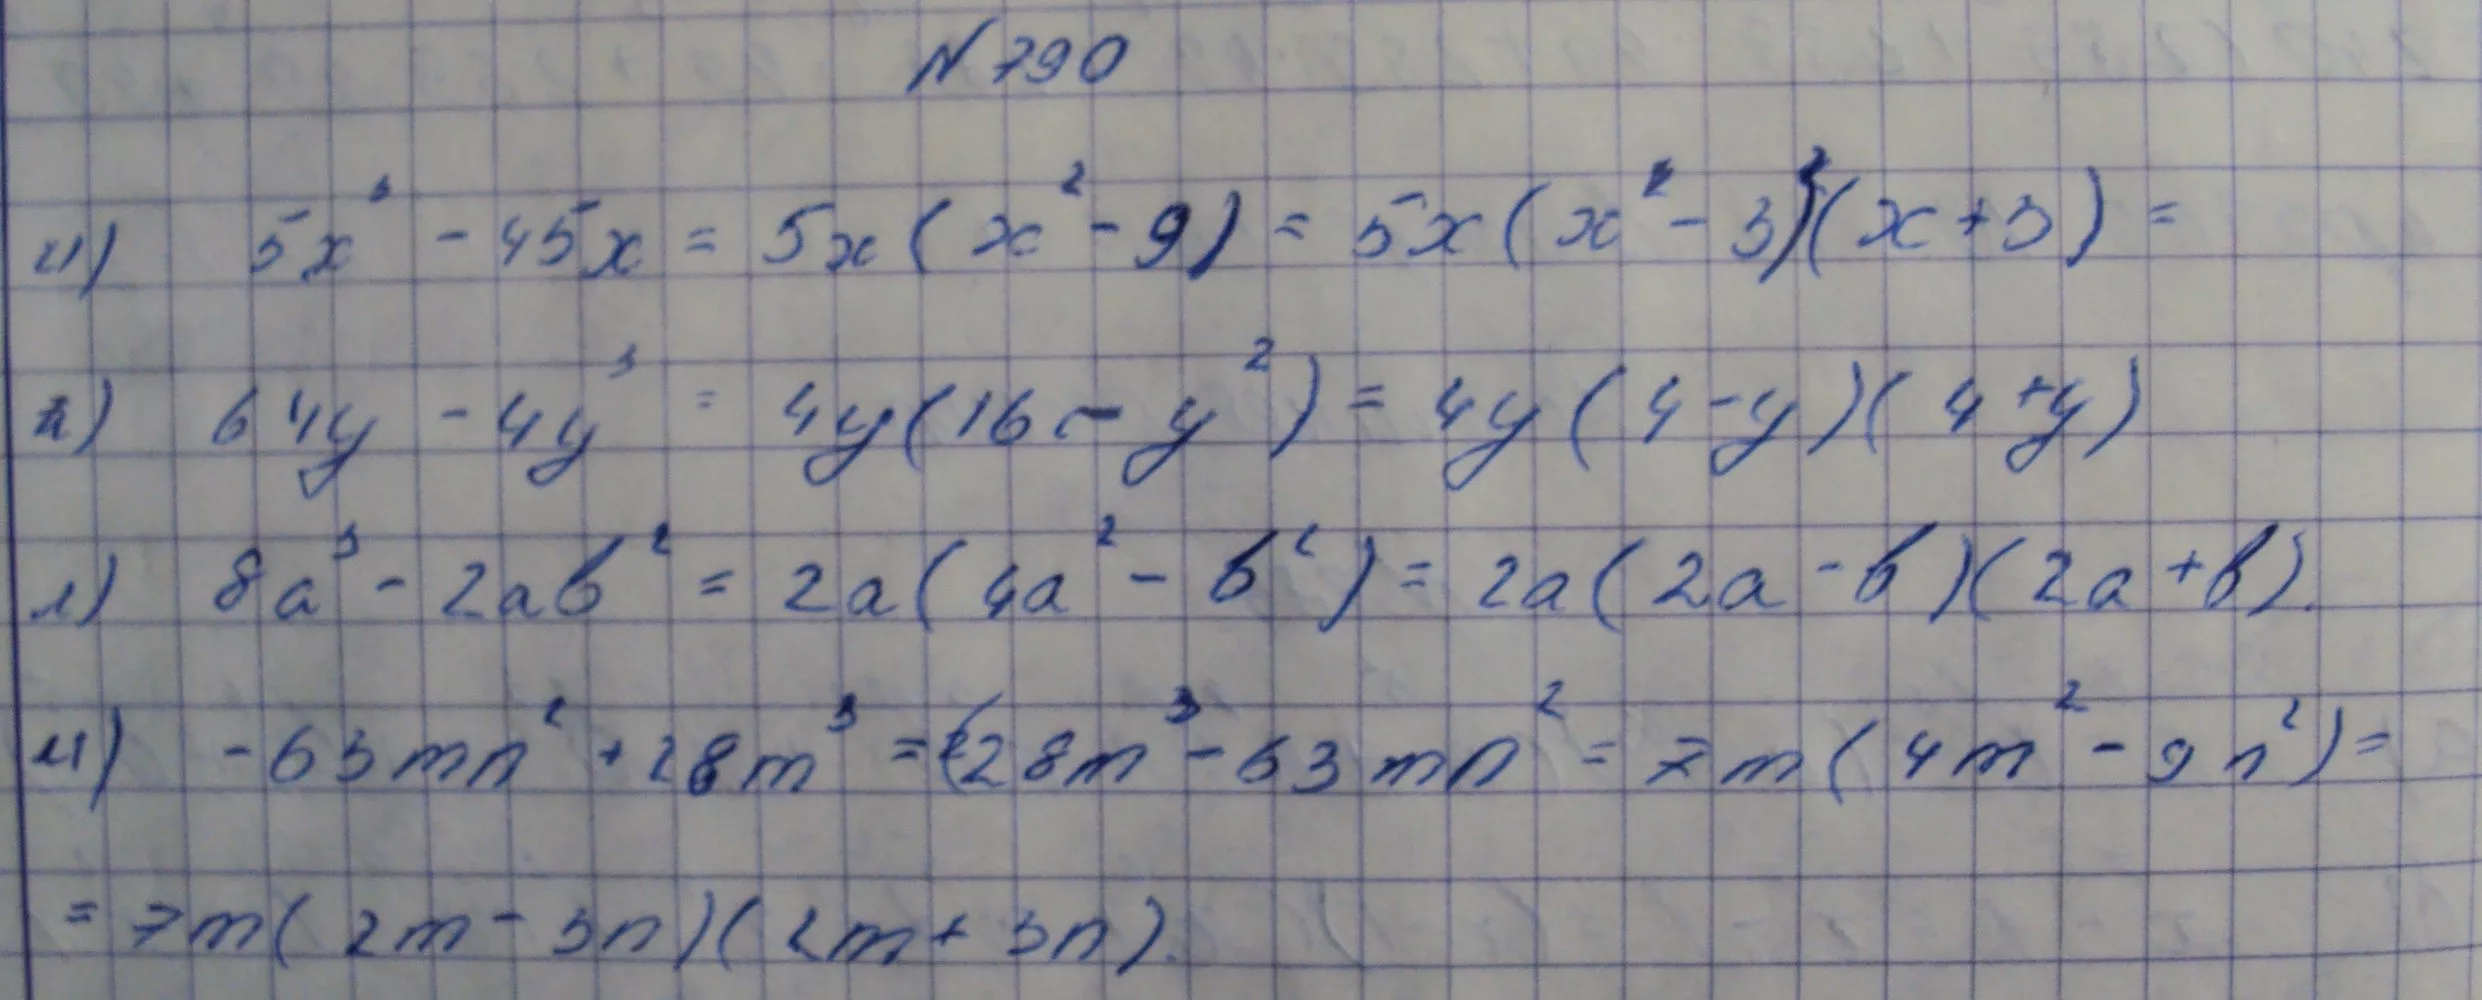 №790
и) 5x³ - 45x = 5x(x² - 9) = 5x(x - 3)(x + 3) =
к) 64y - 4y³ = 4y(16 - y²) = 4y(4 - y)(4 + y)
л) 8a³ - 2ab² = 2a(4a² - b²) = 2a(2a - b)(2a + b).
м) -63mn² + 28m³ = 28m³ - 63mn² = 7m(4m² - 9n²) =
= 7m(2m - 3n)(2m + 3n).